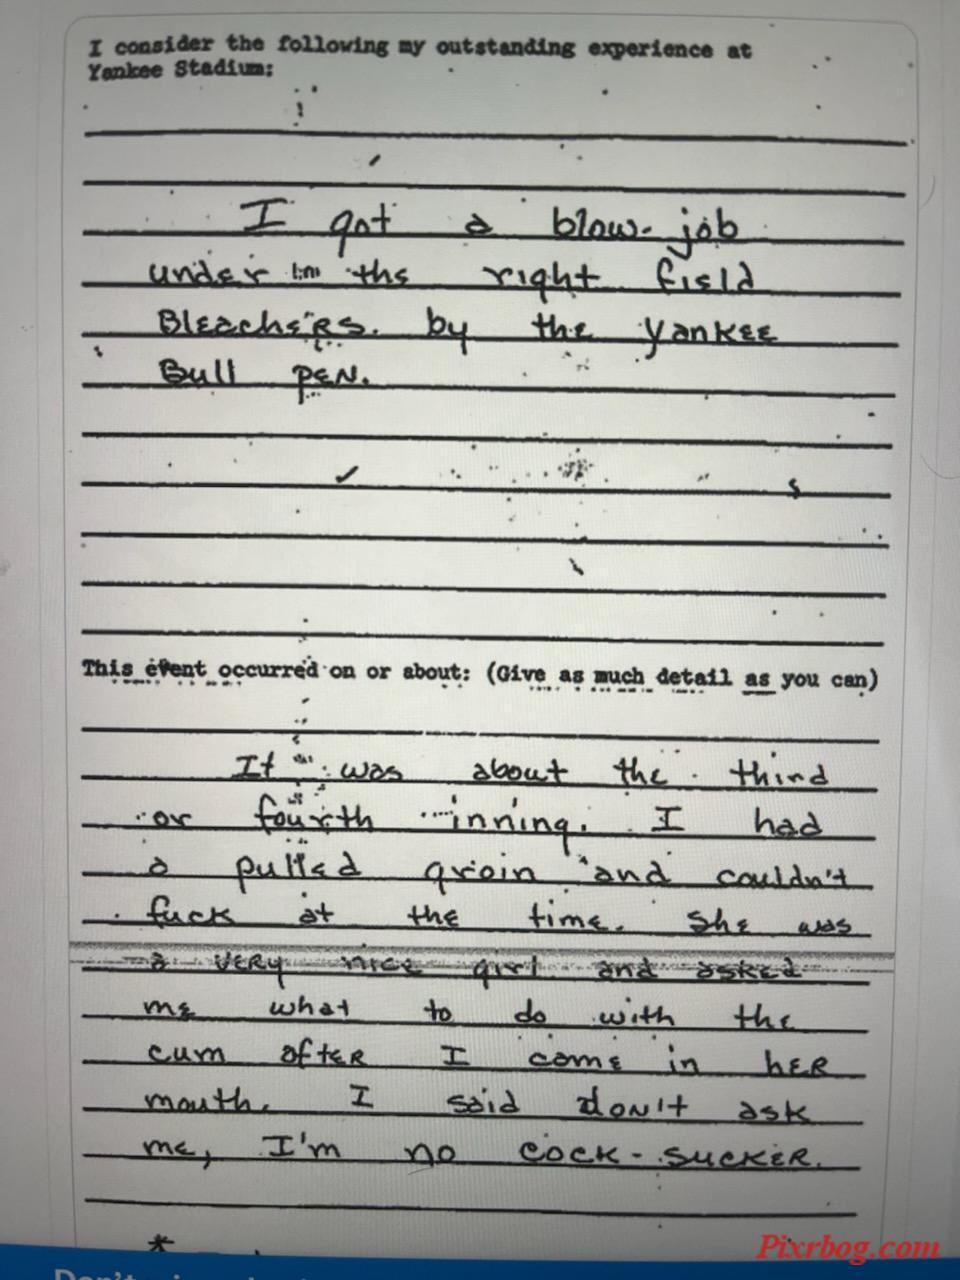 I consider the following my outstanding experience at
Yankee Stadium:
I got a blow-job
under the right field
Bleachers. by the Yankee
Bull pen.
This event occurred on or about: (Give as much detail as you can)
It was about the third
or fourth inning. I had
a pulled groin and couldn't
fuck at the time. She was
a very nice girl and asked
me what to do with the
cum after I come in her
mouth. I said don't ask
me, I'm no cock-sucker.
*
Pixrbog.com